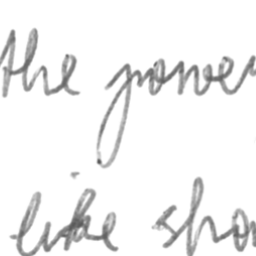 the power
like sho